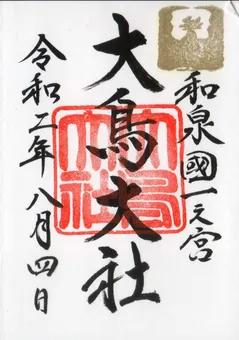 和泉國一之宮
大鳥大社
令和二年八月四日